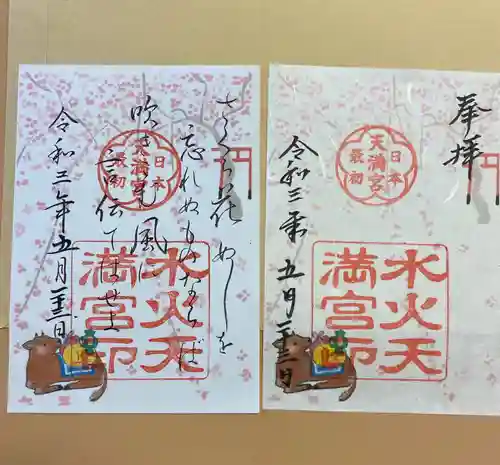 さくら花ぬしを
忘れぬものならば
吹きこむ風に
言伝てはせよ
令和三年五月二十三日
日本
天満宮
最初
水火天
満宮印
奉拝
令和三年五月二十三日
日本
天満宮
最初
水火天
満宮印